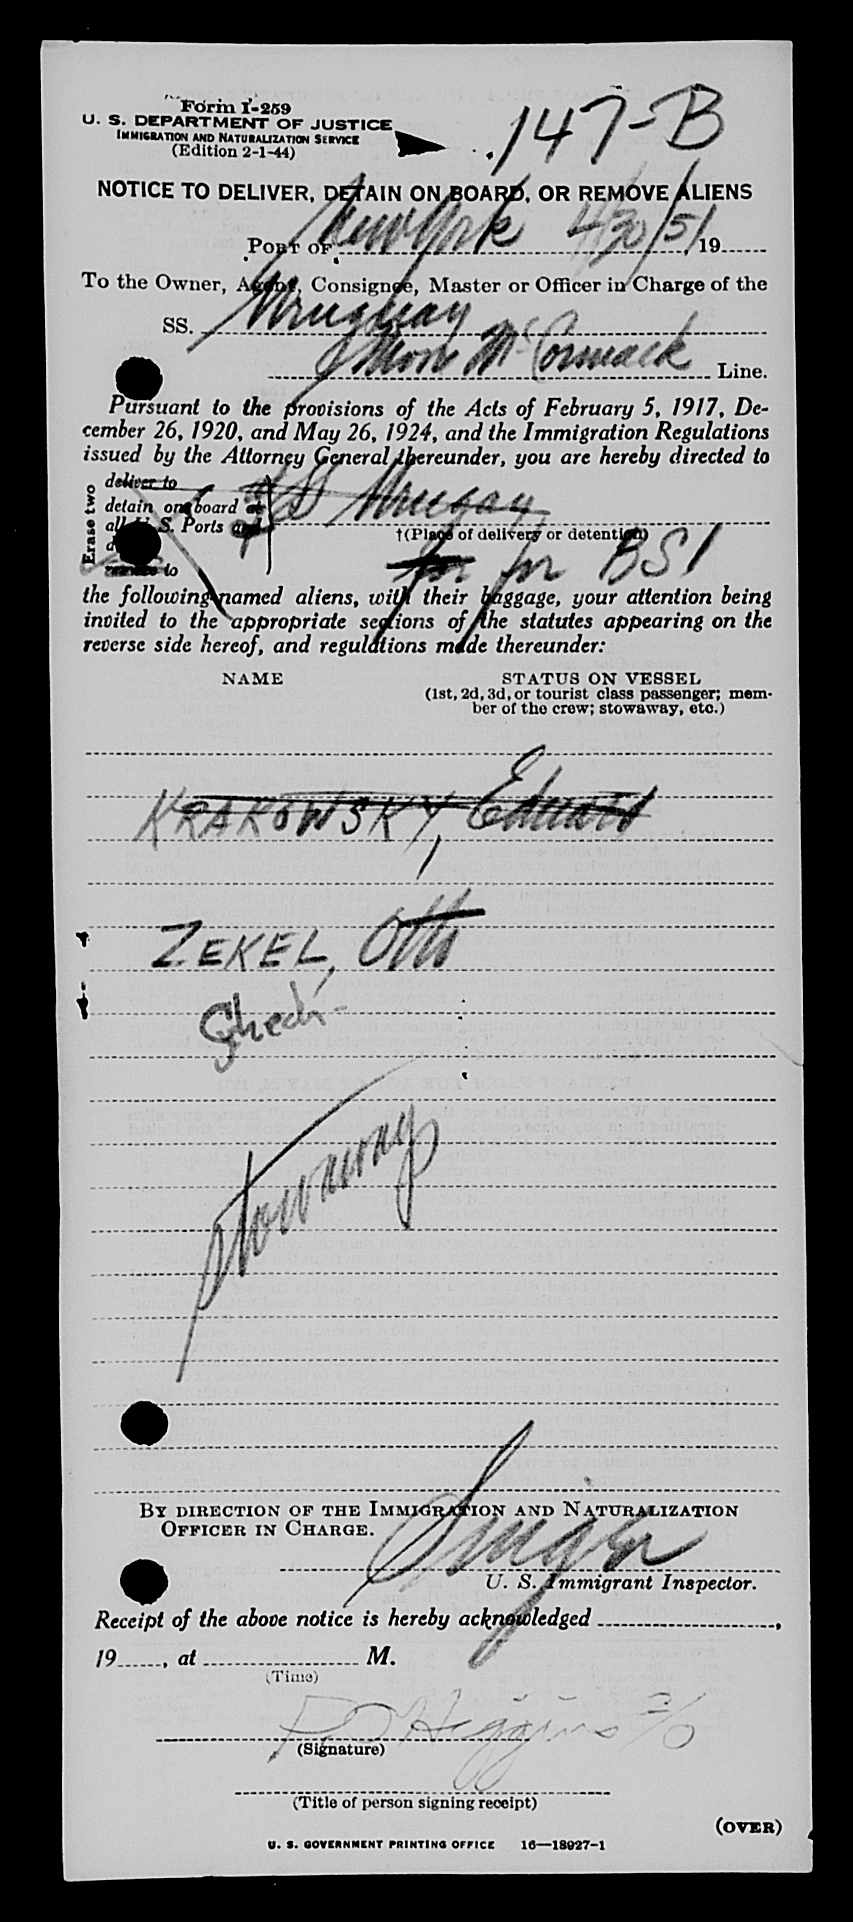 Form I-259
U. S. DEPARTMENT OF JUSTICE
IMMIGRATION AND NATURALIZATION SERVICE
(Edition 2-1-44)
147-B
NOTICE TO DELIVER, DETAIN ON BOARD, OR REMOVE ALIENS
PORT OF New York 4/30/51, 19
To the Owner, Agent, Consignee, Master or Officer in Charge of the
SS. Uruguay
Moore McCormack Line.
Pursuant to the provisions of the Acts of February 5, 1917, De-
cember 26, 1920, and May 26, 1924, and the Immigration Regulations
issued by the Attorney General thereunder, you are hereby directed to
Erase two
deliver to
detain on board at
all U. S. Ports and
to
SS Urugay
†(Place of delivery or detention)
for for BSI
the following named aliens, with their baggage, your attention being
invited to the appropriate sections of the statutes appearing on the
reverse side hereof, and regulations made thereunder:
NAME
STATUS ON VESSEL
(1st, 2d, 3d, or tourist class passenger; mem-
ber of the crew; stowaway, etc.)
KRAKOWSKY, Eduard
ZEKEL, Otto
Stowaway
BY DIRECTION OF THE IMMIGRATION AND NATURALIZATION
OFFICER IN CHARGE.
U. S. Immigrant Inspector.
Receipt of the above notice is hereby acknowledged ,
19 , at M.
(Time)
Higgins 2/0
(Signature)
(Title of person signing receipt)
(OVER)
U. S. GOVERNMENT PRINTING OFFICE 16—18927-1